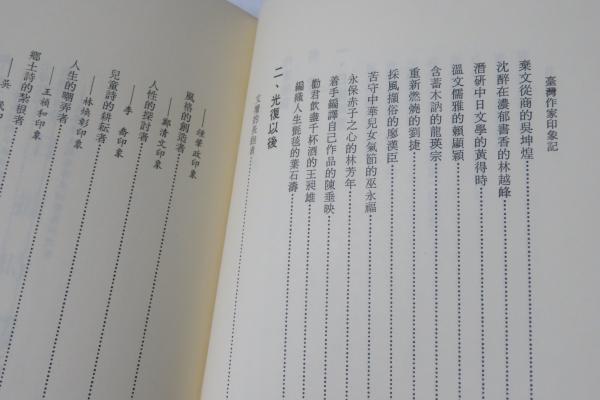 臺灣作家印象記
棄文從商的吳坤煌
沈醉在濃郁書香的林越峰
潛研中日文學的黃得時
溫文儒雅的賴顯穎
含蓄木訥的龍瑛宗
重新燃燒的劉捷
採風擷俗的廖漢臣
苦守中華兒女氣節的巫永福
永保赤子之心的林芳年
着手編譯自己作品的陳垂映
勸君飲盡千杯酒的王昶雄
編織人生氈毯的葉石濤
二、光復以後
文壇的長跑者
——鍾肇政印象
風格的創造者
——鄭清文印象
人性的探討者
——李喬印象
兒童詩的耕耘者
——林煥彰印象
人生的嘲弄者
——王禎和印象
鄉土詩的紮根者
——吳